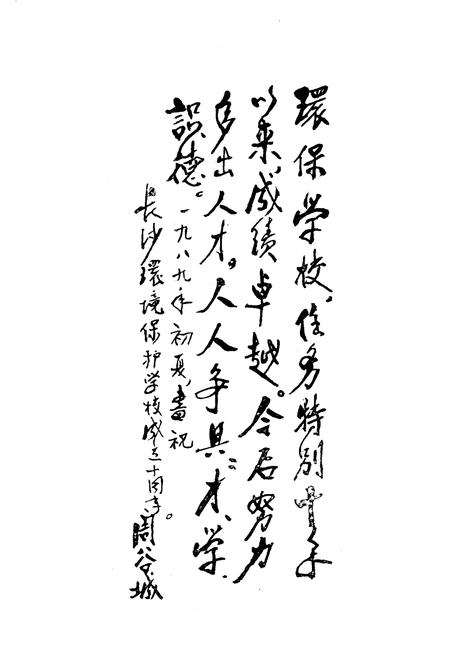 環保学校，任务特别
以来，成绩卓越。今后努力
多出人才。人人争具：才、学、
識、德。
一九八九年初夏，書祝
長沙環境保护学校成立十周年。
周谷城